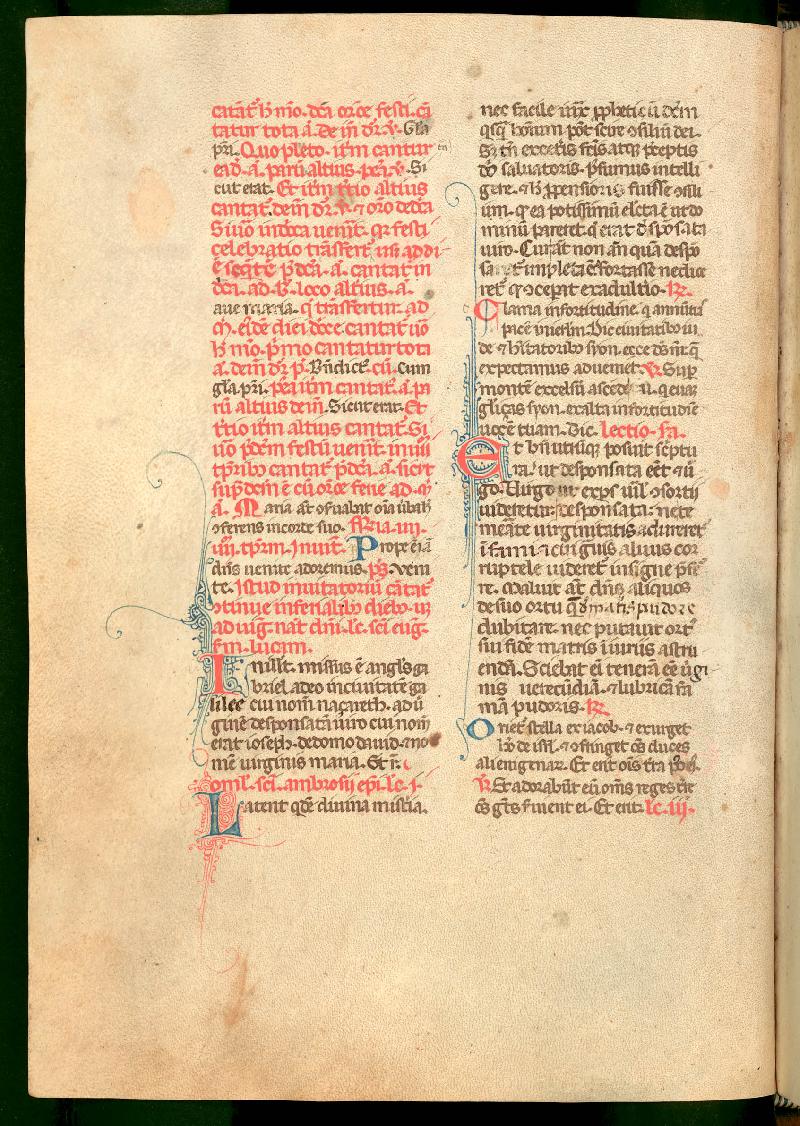 cātat̄ b̄ mō. dc̄a or̄ōe festi. cā
tatur tota a. De in dr̄. v̄. Gla
pr̄i. Quo pleto. itm̄ cantur
ead̄. a. parū altius. pea. v̄. Si
cut erat. Et itm̄ t̄tio altius
cantat̄. dein dr̄. v̄. ⁊ or̄o dc̄a
Si uō infra ueniūt. qr festi
celebratio trāsfert̄ nisi addi
ē seq̄te p̄dc̄a. a. cantat̄ in
loco altius. a.
aue maria. q̄ transfertur. ad
eidē diei cantat̄ uō
b̄ mō. p̄mo cantatur tota
a. dein dr̄ p̄. Bn̄dict̄. cū. cum
gla pr̄i. pea itm̄ cantat̄. a. pa
rū altius dein. Sicut erat. Et
t̄tio itm̄ altius cantat̄. Si
uō p̄dem festū uenit̄. in iiii
tp̄ribꝰ cantat̄ p̄dc̄a. a. sicut
sup̄dem ē cū or̄ōe ferie ad.
a. Maria aūt ɔseruabat oīa ūba h̄
ɔferens in corde suo. Feria. iiii.
iiii. tp̄rm. Inuit̄. Prope ē iā
dn̄s uenite adoremus. ps̄. veni
te. Istud inuitatoriū cātat̄
ɔtinue in ferialibꝰ diebꝰ. usq̄
ad uig. nat̄ dn̄i. lc̄. sc̄i euḡ.
ſm̄. lucam.
In illt̄. missus ē angl̄s ga
briel. a deo in ciuitatē ga
lilee cui nom̄ naçareth. ad ū
ginē desponsatā uiro cui nom̄
erat ioseph. de domo dauid. ⁊ no
mē uirginis maria. Et r̄.
oml̄. sc̄i. ambrosii epī. lc̄. i.
Latent qd̄e diuina mist̄ia.
nec facile iuxͣ ꝓphetic̄ū dc̄m
qsq̄ hoīnum pōt scire ɔsiliū dei.
S; tn̄ ex cet̄is fc̄is atq̄ p̄ceptis
dn̄i saluatoris. possumus intelli
gere. ⁊ h̄ ꝓpensioris fuisse ɔsili
um. q ea potissimū electa ē ut do
minū pareret q̄ erat desponsata
uiro. Cur aūt non añ quā despo
saret̄ impleta ē. fortasse ne dice
ret̄ q ɔceperat ex adult̄io. R.
Clama in fortitudine. q annūtias
pacē in ierl̄m. Dic ciuitatibꝰ iu
de ⁊ hītatoribꝰ syon. ecce ds̄ nr̄ quē
expectamus adueniet. V. Sup
montē excelsū ascēde tu. q euā
gliças syon. exalta in fortitudīe
uocē tuam. Dic. Lectio. ſa.
Et bn̄ utrūq̄ posuit sc̄ptu
ra. ut desponsata eēt̄ ⁊ ū
go. Uirgo ut expers uiril ɔsortii
uideretur. desponsata: ne te
merate uirginitatis adureret̄
īfamia. cui grauis aluus cor
ruptele uideret̄ insigne p̄fer
re. Maluit aūt dn̄s aliquos
de suo ortu q̄ de matris pudore
dubitare. nec putauit ort̄
sui fidē matris iniuriis astru
endā. Sciebat ei tenerā eē ūgi
nis uerecūdiā. ⁊ lubricā fa
mā pudoris. R.
Oriet̄ stella ex iacob. ⁊ exurget
hō de isrl̄. ⁊ ɔfringet oēs duces
alienigenaꝝ. Et erit oīs t̄ra possessio.
V. Et adorabūt eū oms̄ reges t̄re
oēs gētes seruient ei. Et erit. lc̄. iii.